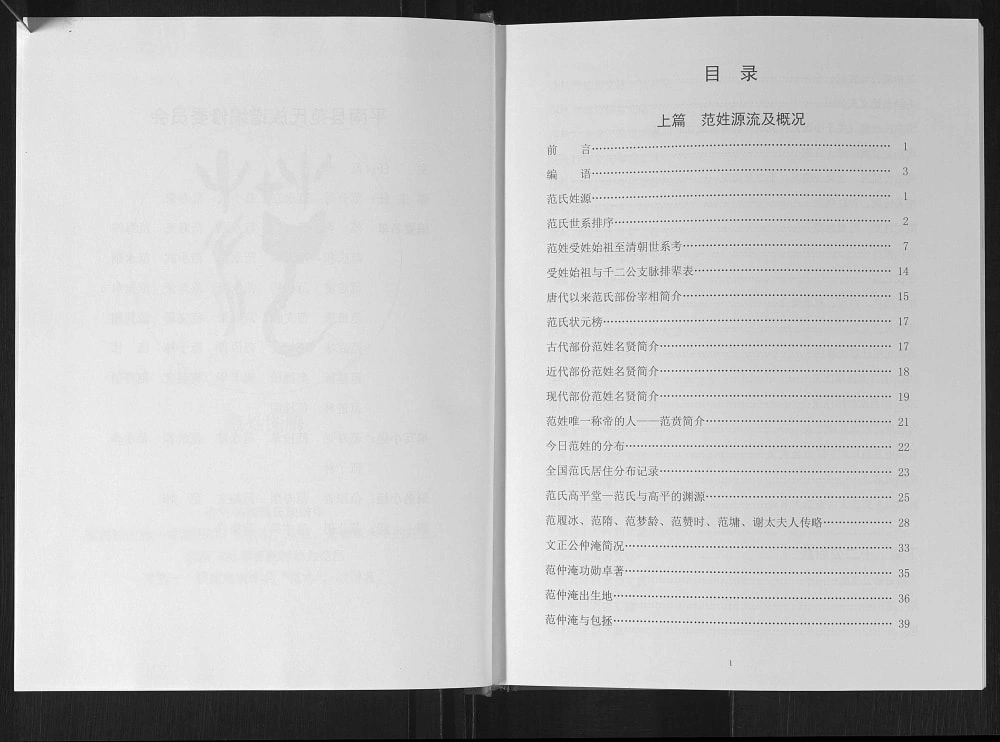 目 录
上篇 范姓源流及概况
前 言…………………………………………………… 1
编 语…………………………………………………… 3
范氏姓源…………………………………………………… 1
范氏世系排序…………………………………………………… 2
范姓受姓始祖至清朝世系考…………………………………………………… 7
受姓始祖与千二公支脉排辈表…………………………………………………… 14
唐代以来范氏部份宰相简介…………………………………………………… 15
范氏状元榜…………………………………………………… 17
古代部份范姓名贤简介…………………………………………………… 17
近代部份范姓名贤简介…………………………………………………… 18
现代部份范姓名贤简介…………………………………………………… 19
范姓唯一称帝的人——范贲简介…………………………………………………… 21
今日范姓的分布…………………………………………………… 22
全国范氏居住分布记录…………………………………………………… 23
范氏高平堂—范氏与高平的渊源…………………………………………………… 25
范履冰、范隋、范梦龄、范赞时、范墉、谢太夫人传略………………… 28
文正公仲淹简况…………………………………………………… 33
范仲淹功勋卓著…………………………………………………… 35
范仲淹出生地…………………………………………………… 36
范仲淹与包拯…………………………………………………… 39
1